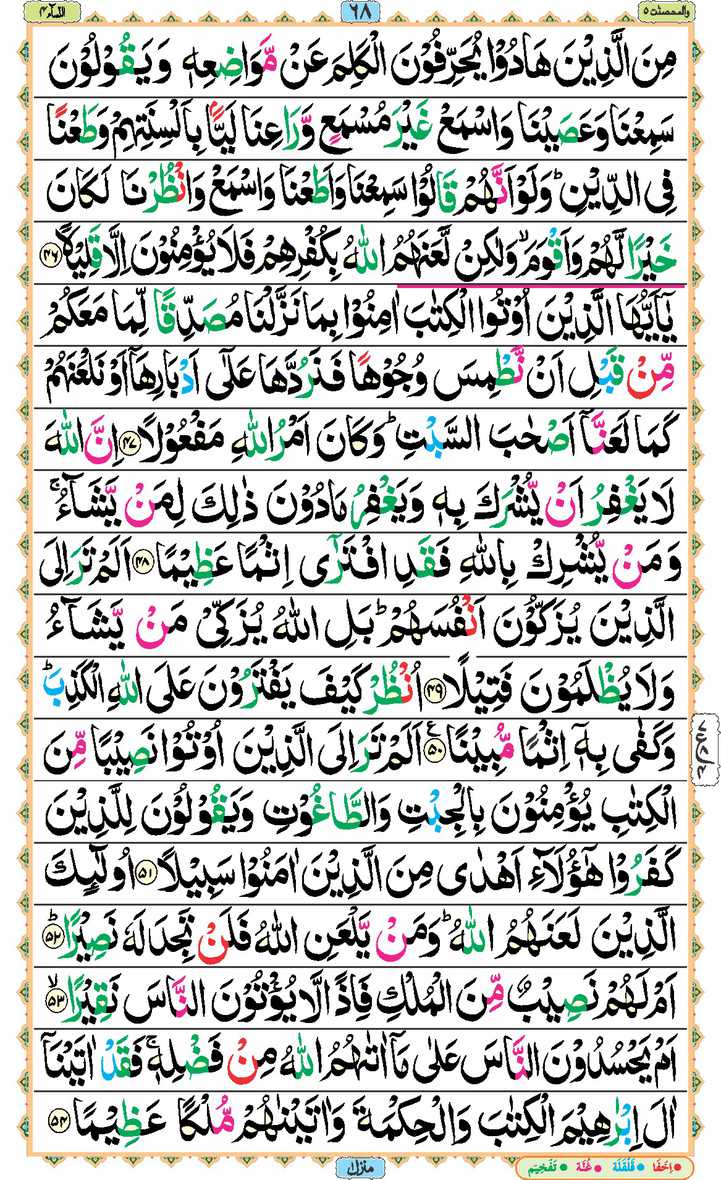 والمحصنت ۵
۶۸
النسآء ۴
مِنَ الَّذِيْنَ هَادُوْا يُحَرِّفُوْنَ الْكَلِمَ عَنْ مَّوَاضِعِهٖ وَيَقُوْلُوْنَ
سَمِعْنَا وَعَصَيْنَا وَاسْمَعْ غَيْرَ مُسْمَعٍ وَّرَاعِنَا لَيًّۢا بِاَلْسِنَتِهِمْ وَطَعْنًا
فِى الدِّيْنِ ؕ وَلَوْ اَنَّهُمْ قَالُوْا سَمِعْنَا وَاَطَعْنَا وَاسْمَعْ وَانْظُرْنَا لَكَانَ
خَيْرًا لَّهُمْ وَاَقْوَمَ ۙ وَلٰكِنْ لَّعَنَهُمُ اللّٰهُ بِكُفْرِهِمْ فَلَا يُؤْمِنُوْنَ اِلَّا قَلِيْلًا ۴۶
يٰۤاَيُّهَا الَّذِيْنَ اُوْتُوا الْكِتٰبَ اٰمِنُوْا بِمَا نَزَّلْنَا مُصَدِّقًا لِّمَا مَعَكُمْ
مِّنْ قَبْلِ اَنْ نَّطْمِسَ وُجُوْهًا فَنَرُدَّهَا عَلٰۤى اَدْبَارِهَاۤ اَوْ نَلْعَنَهُمْ
كَمَا لَعَنَّاۤ اَصْحٰبَ السَّبْتِ ؕ وَكَانَ اَمْرُ اللّٰهِ مَفْعُوْلًا ۴۷ اِنَّ اللّٰهَ
لَا يَغْفِرُ اَنْ يُّشْرَكَ بِهٖ وَيَغْفِرُ مَا دُوْنَ ذٰلِكَ لِمَنْ يَّشَآءُ ۚ
وَمَنْ يُّشْرِكْ بِاللّٰهِ فَقَدِ افْتَرٰۤى اِثْمًا عَظِيْمًا ۴۸ اَلَمْ تَرَ اِلَى
الَّذِيْنَ يُزَكُّوْنَ اَنْفُسَهُمْ ؕ بَلِ اللّٰهُ يُزَكِّىْ مَنْ يَّشَآءُ
وَلَا يُظْلَمُوْنَ فَتِيْلًا ۴۹ اُنْظُرْ كَيْفَ يَفْتَرُوْنَ عَلَى اللّٰهِ الْكَذِبَ ؕ
وَكَفٰى بِهٖۤ اِثْمًا مُّبِيْنًا ۵۰ اَلَمْ تَرَ اِلَى الَّذِيْنَ اُوْتُوْا نَصِيْبًا مِّنَ
الْكِتٰبِ يُؤْمِنُوْنَ بِالْجِبْتِ وَالطَّاغُوْتِ وَيَقُوْلُوْنَ لِلَّذِيْنَ
كَفَرُوْا هٰۤؤُلَآءِ اَهْدٰى مِنَ الَّذِيْنَ اٰمَنُوْا سَبِيْلًا ۵۱ اُولٰٓئِكَ
الَّذِيْنَ لَعَنَهُمُ اللّٰهُ ؕ وَمَنْ يَّلْعَنِ اللّٰهُ فَلَنْ تَجِدَ لَهٗ نَصِيْرًا ؕ ۵۲
اَمْ لَهُمْ نَصِيْبٌ مِّنَ الْمُلْكِ فَاِذًا لَّا يُؤْتُوْنَ النَّاسَ نَقِيْرًا ۙ ۵۳
اَمْ يَحْسُدُوْنَ النَّاسَ عَلٰى مَاۤ اٰتٰىهُمُ اللّٰهُ مِنْ فَضْلِهٖ ۚ فَقَدْ اٰتَيْنَاۤ
اٰلَ اِبْرٰهِيْمَ الْكِتٰبَ وَالْحِكْمَةَ وَاٰتَيْنٰهُمْ مُّلْكًا عَظِيْمًا ۵۴
منزل
اِخفَا قَلقَلَه غُنَّه تَفخِيم